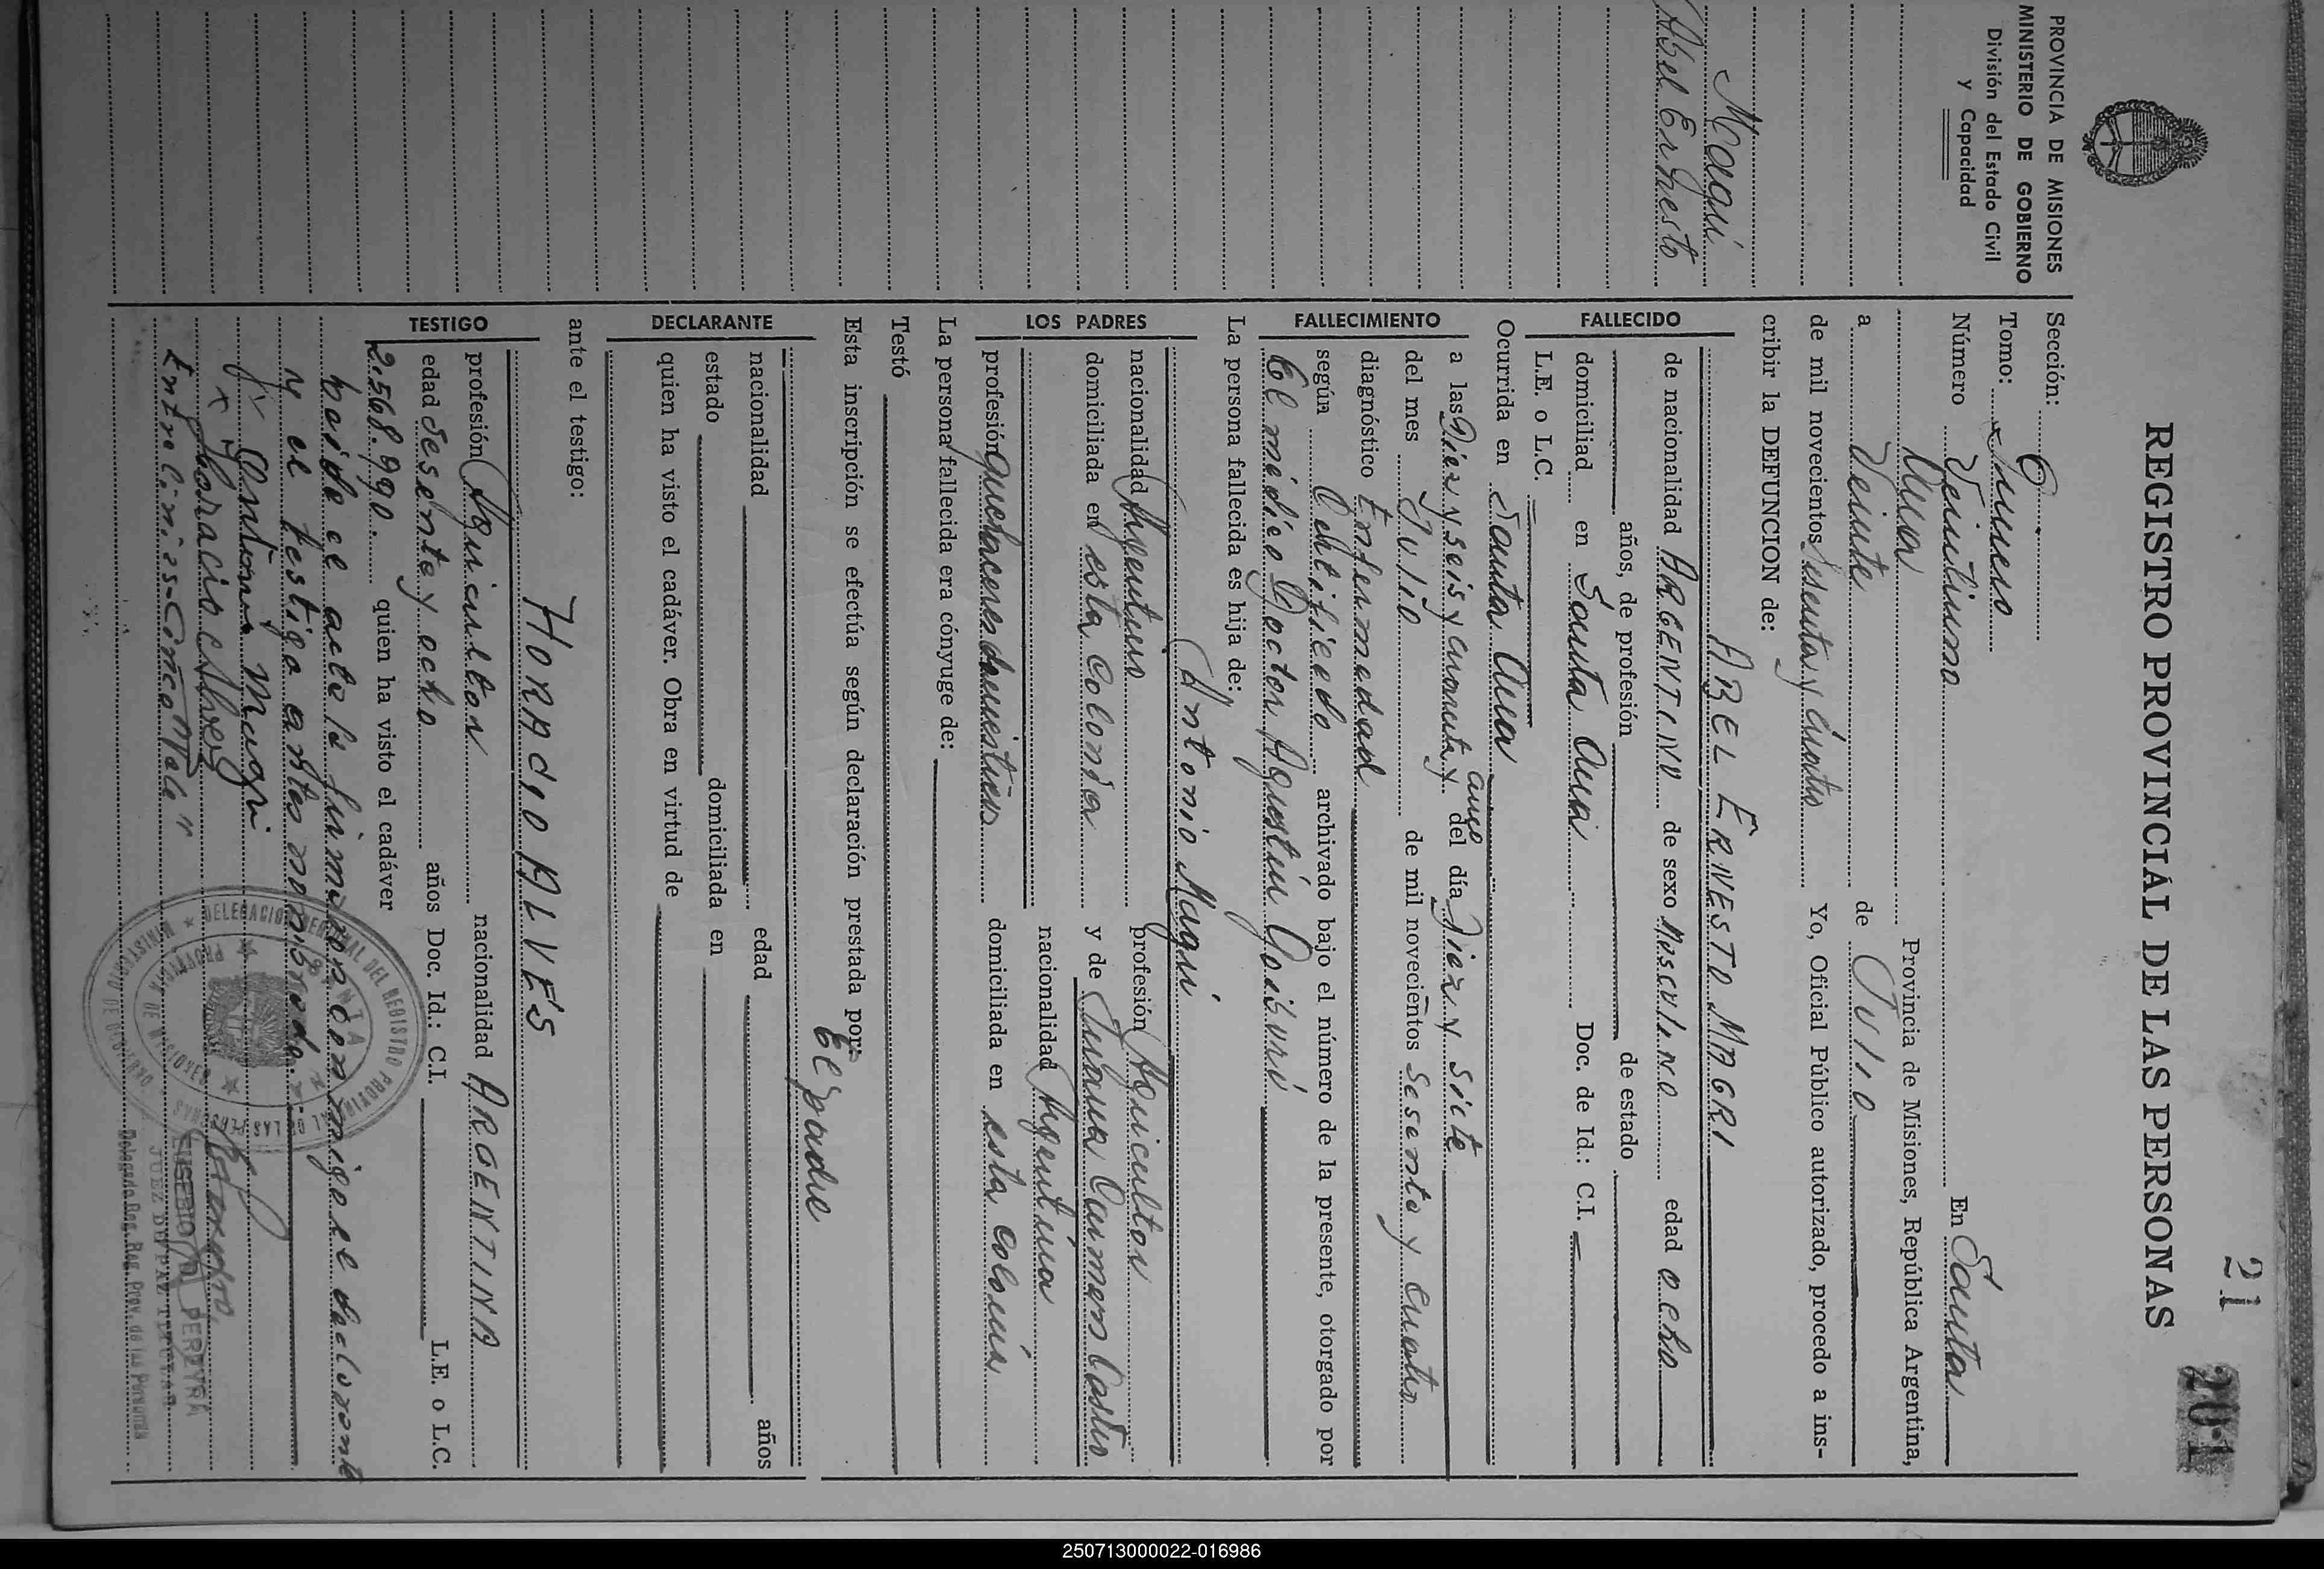 21
201
REGISTRO PROVINCIAL DE LAS PERSONAS
PROVINCIA DE MISIONES
MINISTERIO DE GOBIERNO
División del Estado Civil
y Capacidad
Magri
Abel Ernesto
Sección:
Tomo: Primero
Número Veintiuno En Santa
Ana Provincia de Misiones, República Argentina,
a Veinte de Julio
de mil novecientos Sesenta y Cuatro Yo, Oficial Público autorizado, procedo a ins-
cribir la DEFUNCION de:
FALLECIDO
ABEL ERNESTO MAGRI
de nacionalidad ARGENTINO de sexo Masculino edad ocho
años, de profesión de estado
domiciliad en Santa Ana Doc. de Id.: C.I. =
L.E. o L.C. =
FALLECIMIENTO
Ocurrida en Santa Ana
a las Diez y seis y cuarenta y cinco del día Diez y siete
del mes Julio de mil novecientos sesenta y cuatro
diagnóstico Enfermedad
según Certificado archivado bajo el número de la presente, otorgado por
El médico Doctor Agustín Goiburú
La persona fallecida es hija de:
LOS PADRES
Antonio Magri
nacionalidad Argentino profesión Agricultor
domiciliada en esta Colonia y de Juana Carmen Castro
nacionalidad Argentina
profesión quehaceres domésticos domiciliada en esta colonia
La persona fallecida era cónyuge de:
Testó
Esta inscripción se efectúa según declaración prestada por: El padre
DECLARANTE
nacionalidad edad años
estado domiciliada en
quien ha visto el cadáver. Obra en virtud de
ante el testigo:
TESTIGO
HORACIO ALVES
profesión Agricultor nacionalidad ARGENTINA
edad sesenta y ocho años Doc. Id.: C.I. L.E. o L.C.
2.568.990 quien ha visto el cadáver
Leida el acta la firmaron conmigo el declarante
y el testigo antes nombrado
x Antonio Magri
x Horacio Alvez
Entre lineas-Cinco-Vale"
DELEGACION REGIONAL DEL REGISTRO PROVINCIAL DE LAS PERSONAS
SANTA ANA
PROVINCIA DE MISIONES
MINISTERIO DE GOBIERNO
EUSEBIO PEREYRA
JUEZ DE PAZ TITULAR
Delegado Reg. Reg. Prov. de las Personas
250713000022-016986